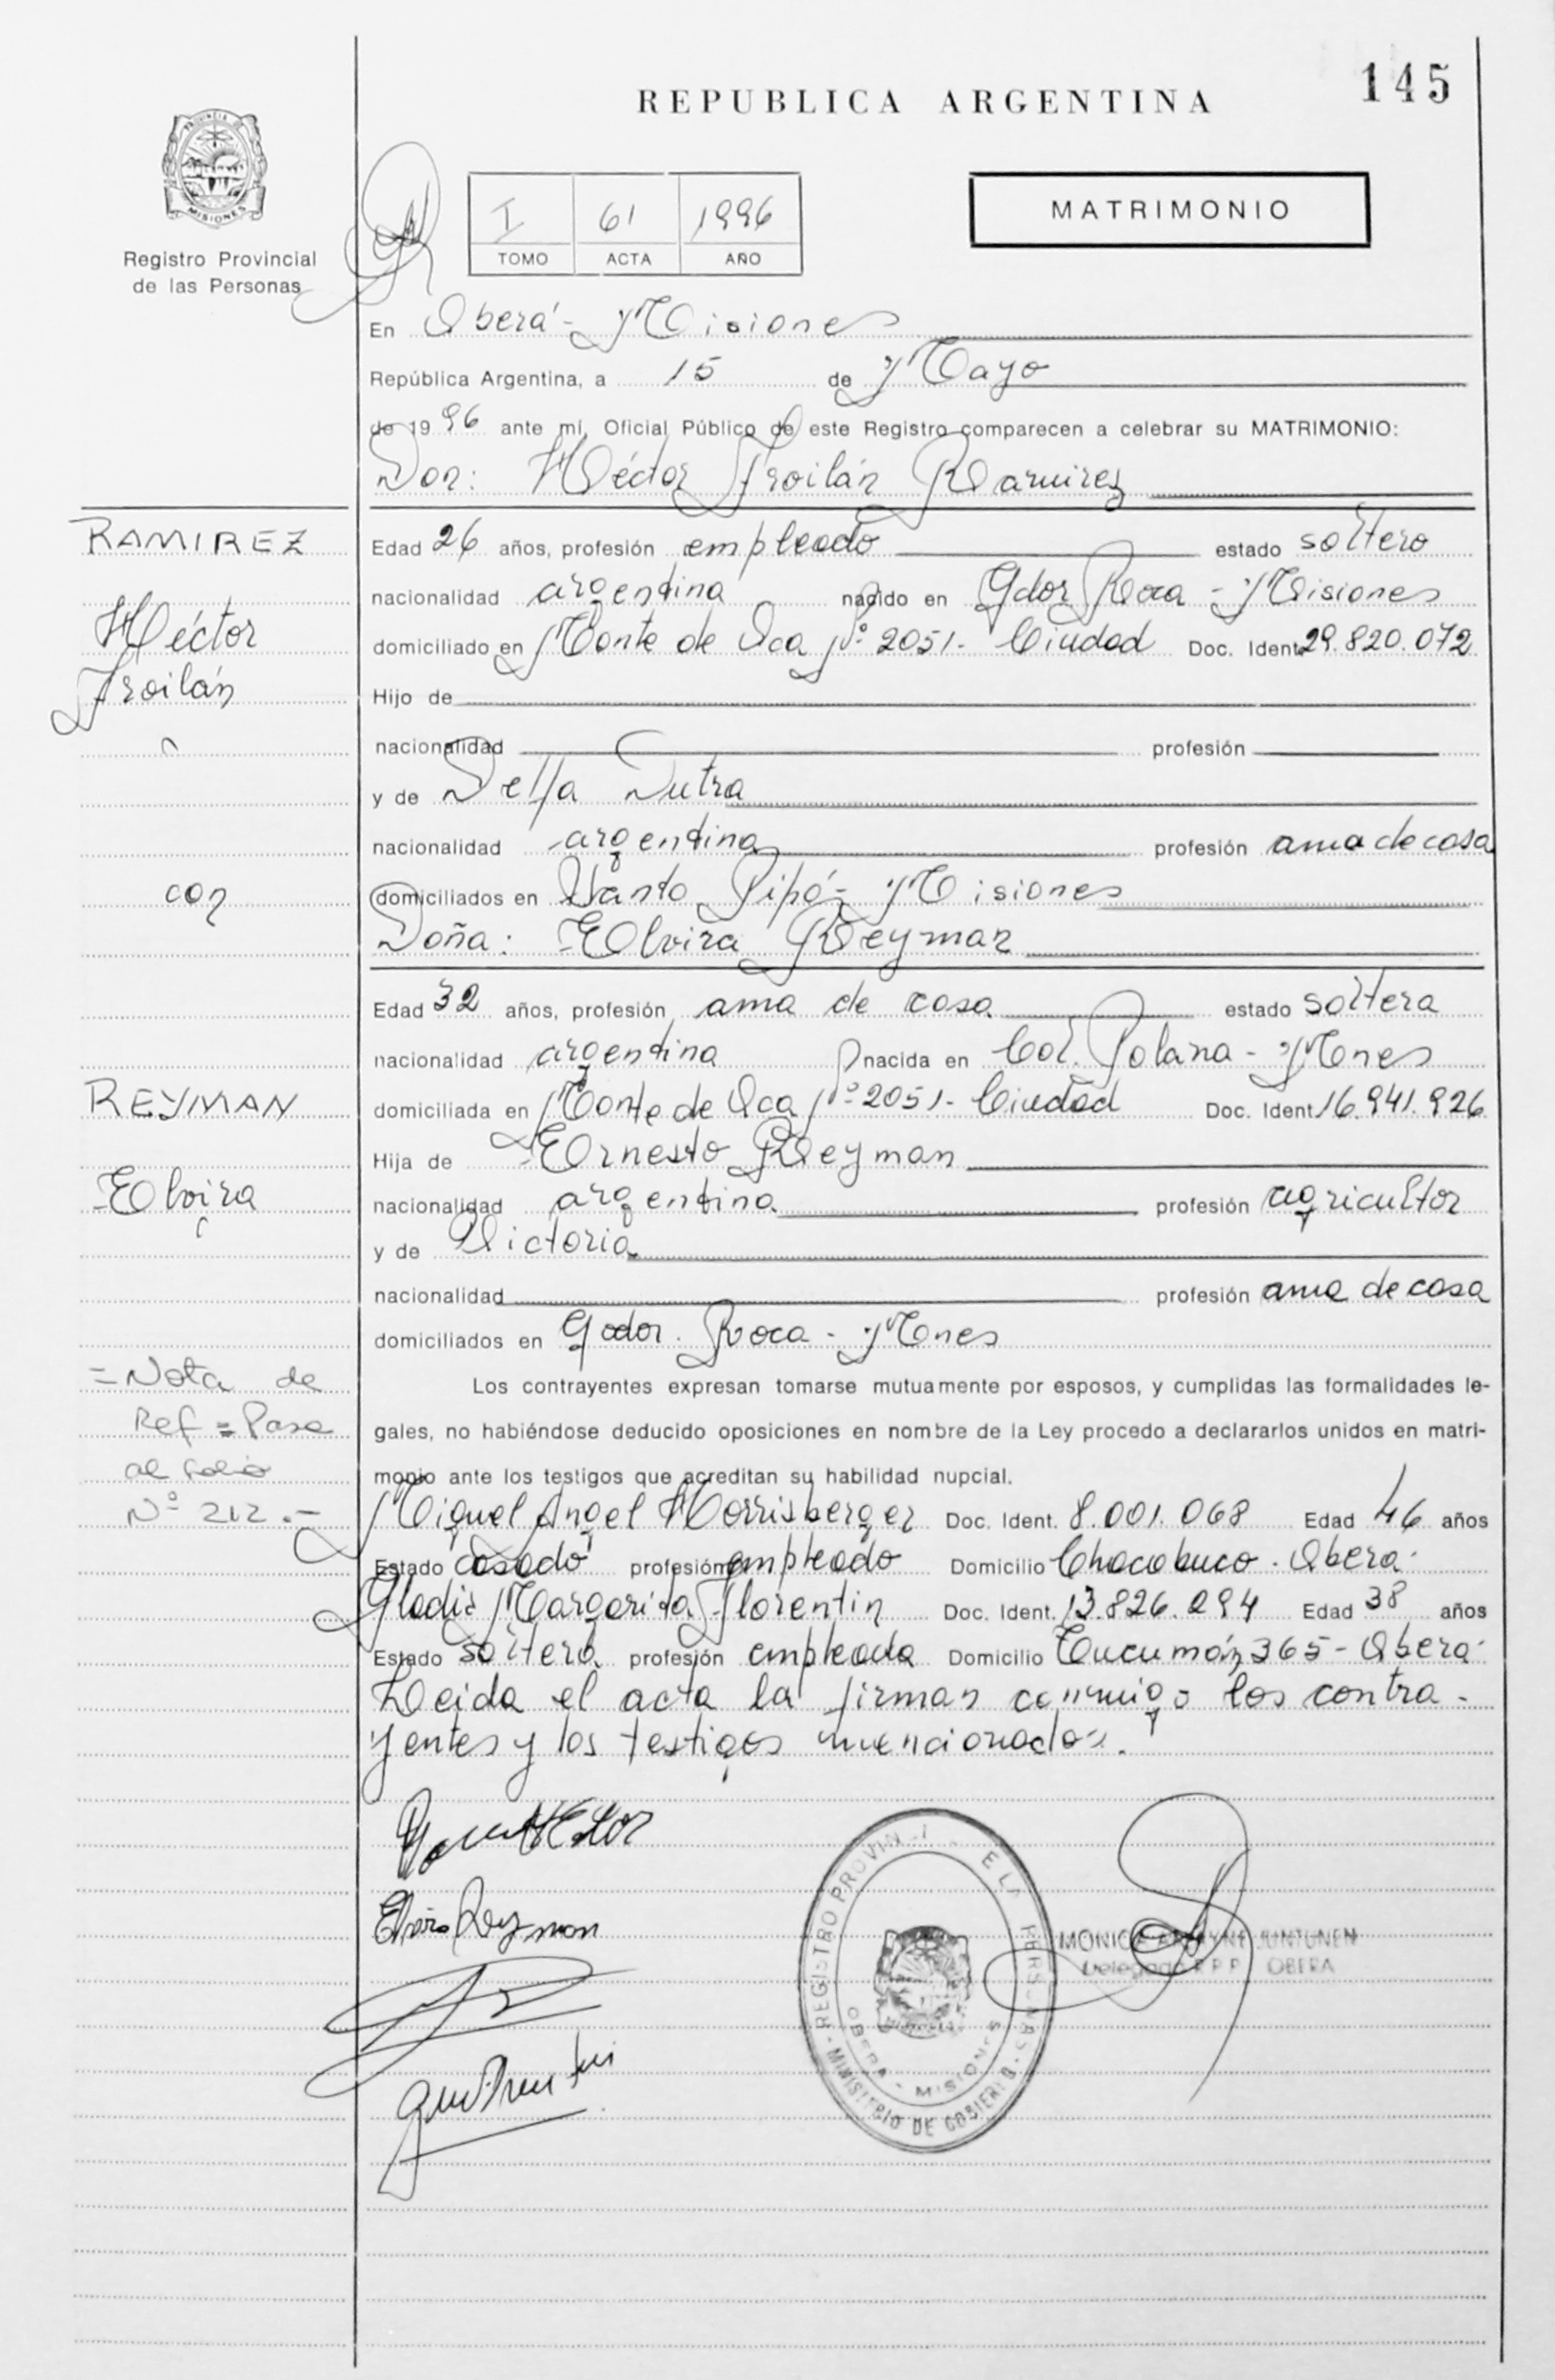 145
REPUBLICA ARGENTINA
PROVINCIA DE
MISIONES
Registro Provincial
de las Personas
I 61 1996
TOMO ACTA AÑO
MATRIMONIO
En Oberá - Misiones
República Argentina, a 15 de Mayo
de 1996 ante mí, Oficial Público de este Registro comparecen a celebrar su MATRIMONIO:
Don: Héctor Froilán Ramirez
RAMIREZ
Héctor
Froilán
con
REYMAN
Elvira
Edad 26 años, profesión empleado estado soltero
nacionalidad argentina nacido en Gdor Roca - Misiones
domiciliado en Monte de Oca Nº 2051 - Ciudad Doc. Ident. 29.820.072
Hijo de
nacionalidad profesión
y de Delfa Dutra
nacionalidad argentina profesión ama de casa
domiciliados en Santo Pipó - Misiones
Doña: Elvira Reyman
Edad 32 años, profesión ama de casa estado soltera
nacionalidad argentina nacida en Col. Polana - Mones
domiciliada en Monte de Oca Nº 2051 - Ciudad Doc. Ident. 16.941.926
Hija de Ernesto Reyman
nacionalidad argentina profesión agricultor
y de Victoria
nacionalidad profesión ama de casa
domiciliados en Gdor. Roca - Mones
= Nota de
Ref = Pase
al folio
Nº 212.-
Los contrayentes expresan tomarse mutuamente por esposos, y cumplidas las formalidades le-
gales, no habiéndose deducido oposiciones en nombre de la Ley procedo a declararlos unidos en matri-
monio ante los testigos que acreditan su habilidad nupcial.
Miguel Angel Horrisberger Doc. Ident. 8.001.068 Edad 46 años
Estado casado profesión empleado Domicilio Chacabuco - Oberá
Gladis Margarita Florentin Doc. Ident. 13.826.294 Edad 38 años
Estado soltera profesión empleada Domicilio Tucumán 365 - Oberá
Leida el acta la firman conmigo los contra-
yentes y los testigos mencionados.
Hector
Elvira Reyman
REGISTRO PROVINCIAL DE LAS PERSONAS
OBERA - MISIONES
MINISTERIO DE GOBIERNO
MONICA JUNTUNEN
Delegada R.P.P. OBERA